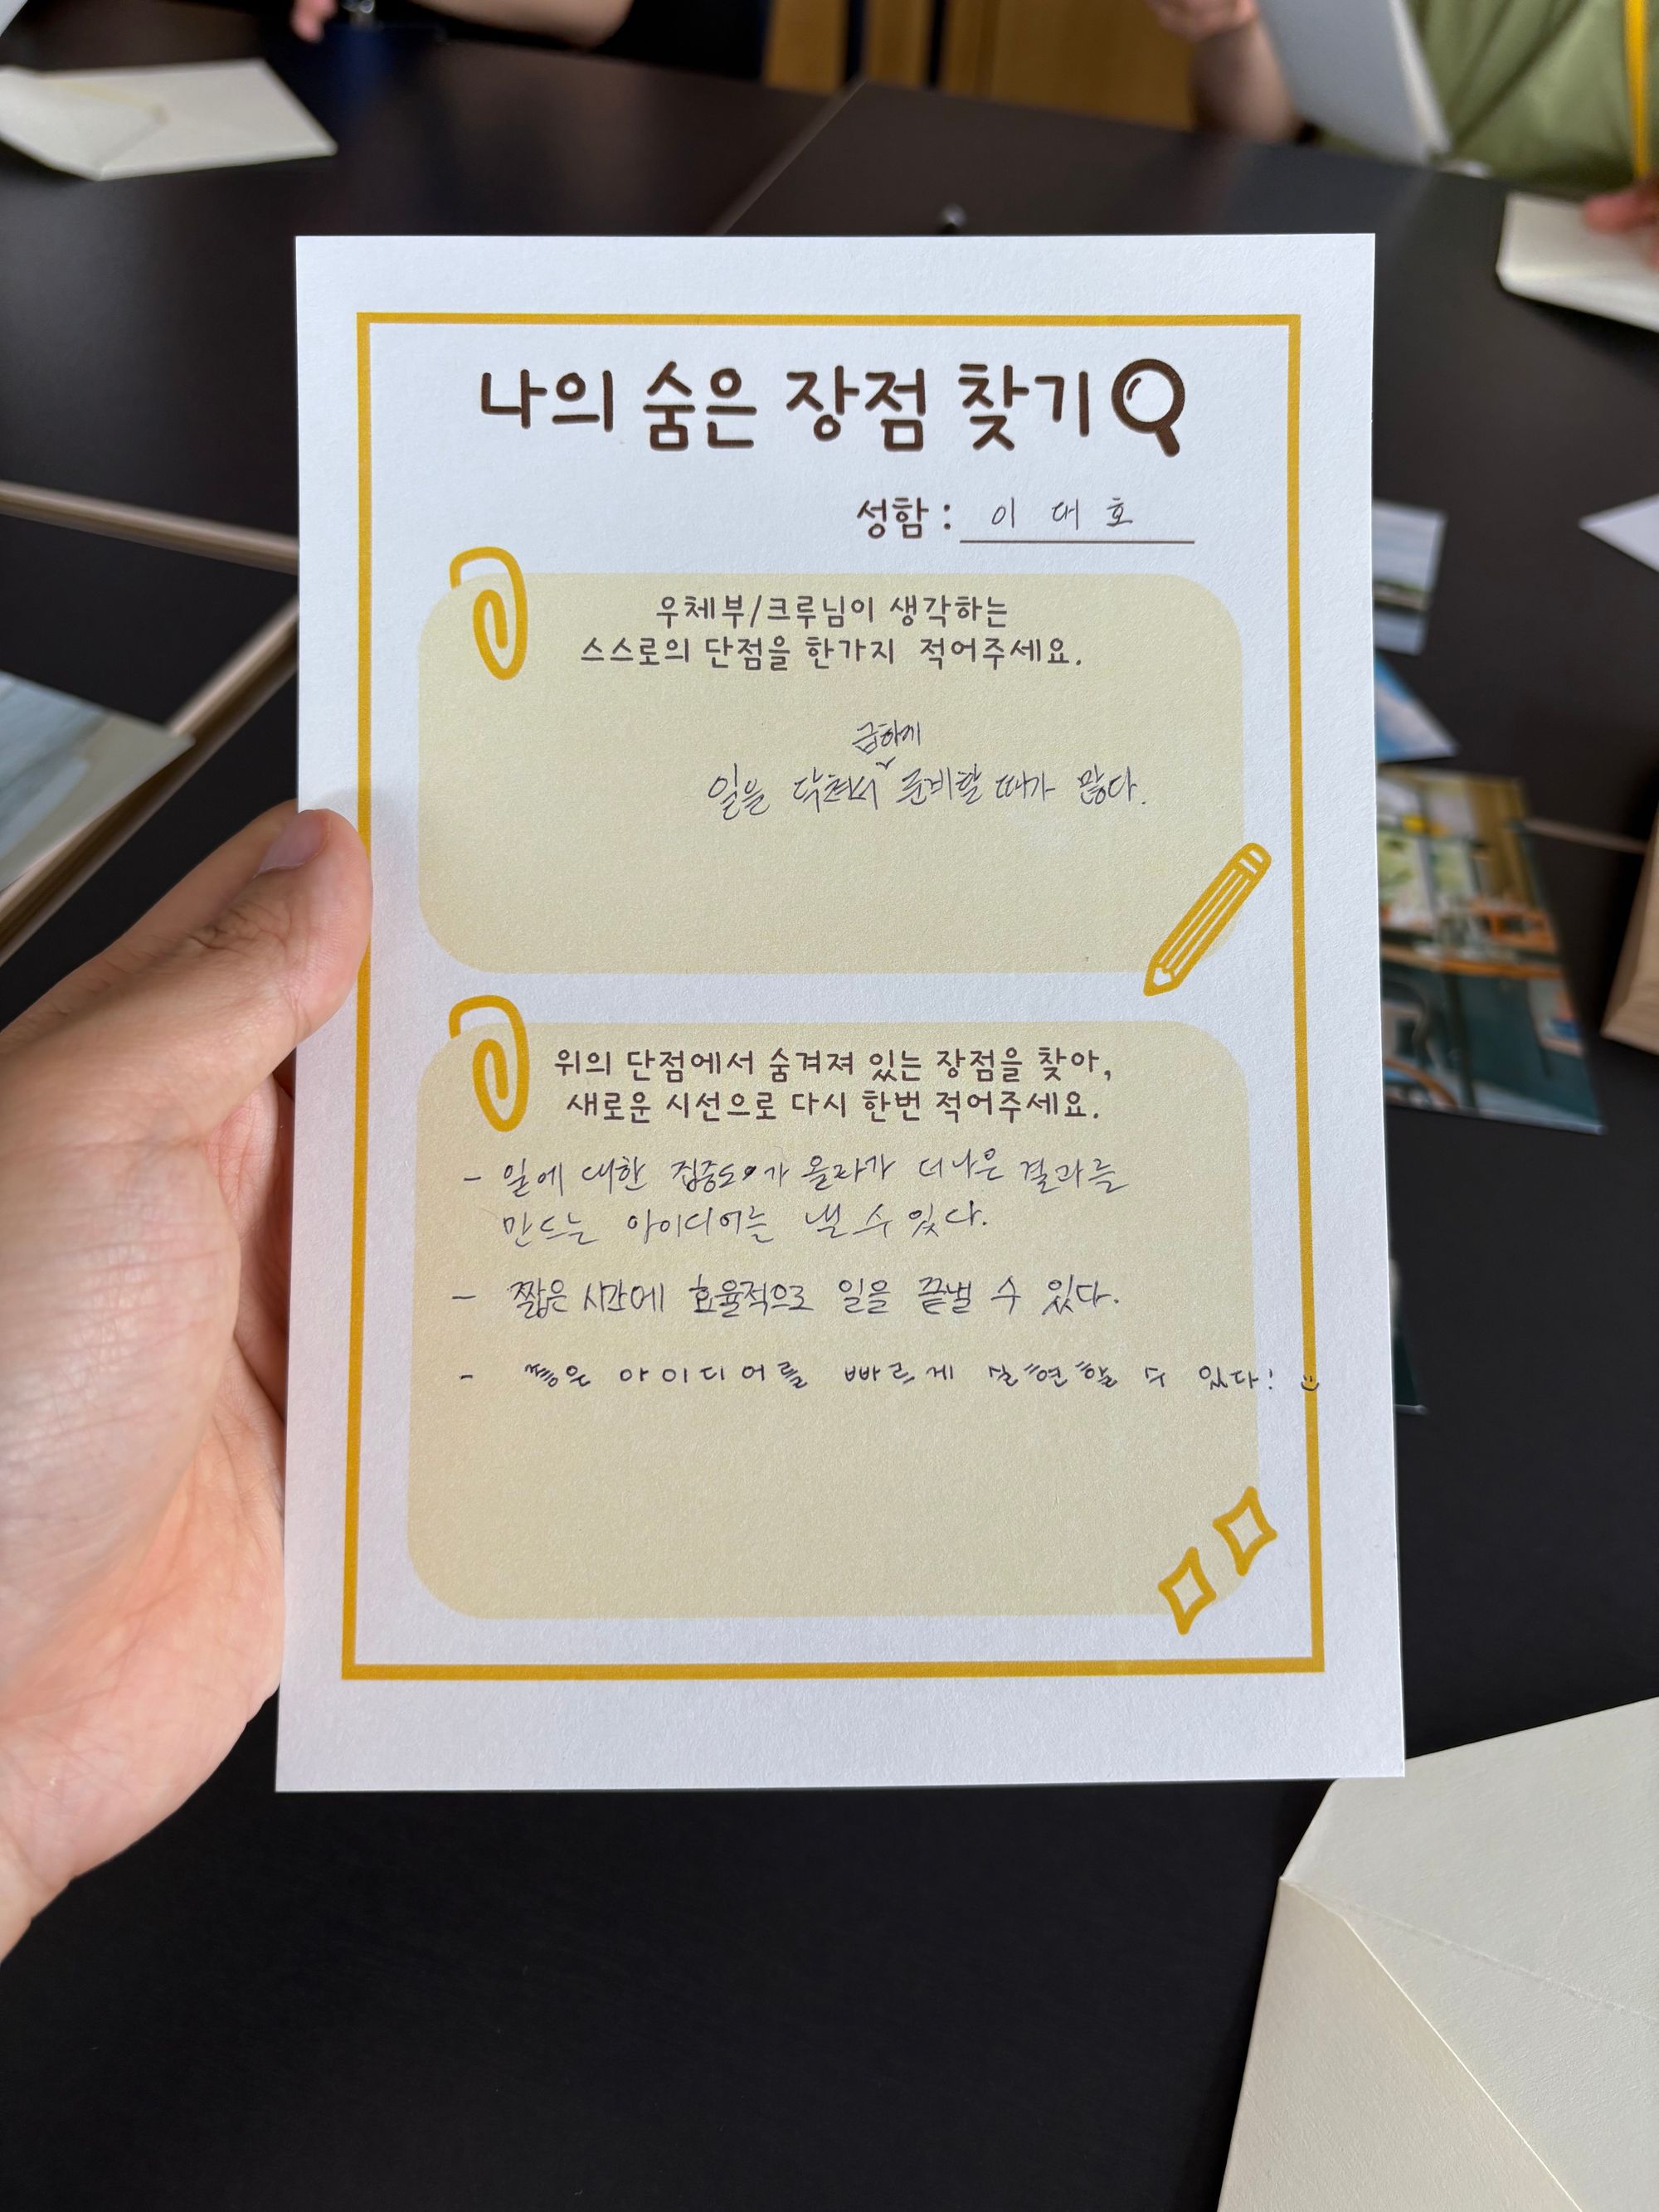 나의 숨은 장점 찾기
성함 : 이 대 호
우체부/크루님이 생각하는
스스로의 단점을 한가지 적어주세요.
급하게
일을 닥쳐서 준비할 때가 많다.
위의 단점에서 숨겨져 있는 장점을 찾아,
새로운 시선으로 다시 한번 적어주세요.
- 일에 대한 집중도가 올라가 더 나은 결과를
만드는 아이디어를 낼 수 있다.
- 짧은 시간에 효율적으로 일을 끝낼 수 있다.
- 아이디어를 빠르게 실현할 수 있다!